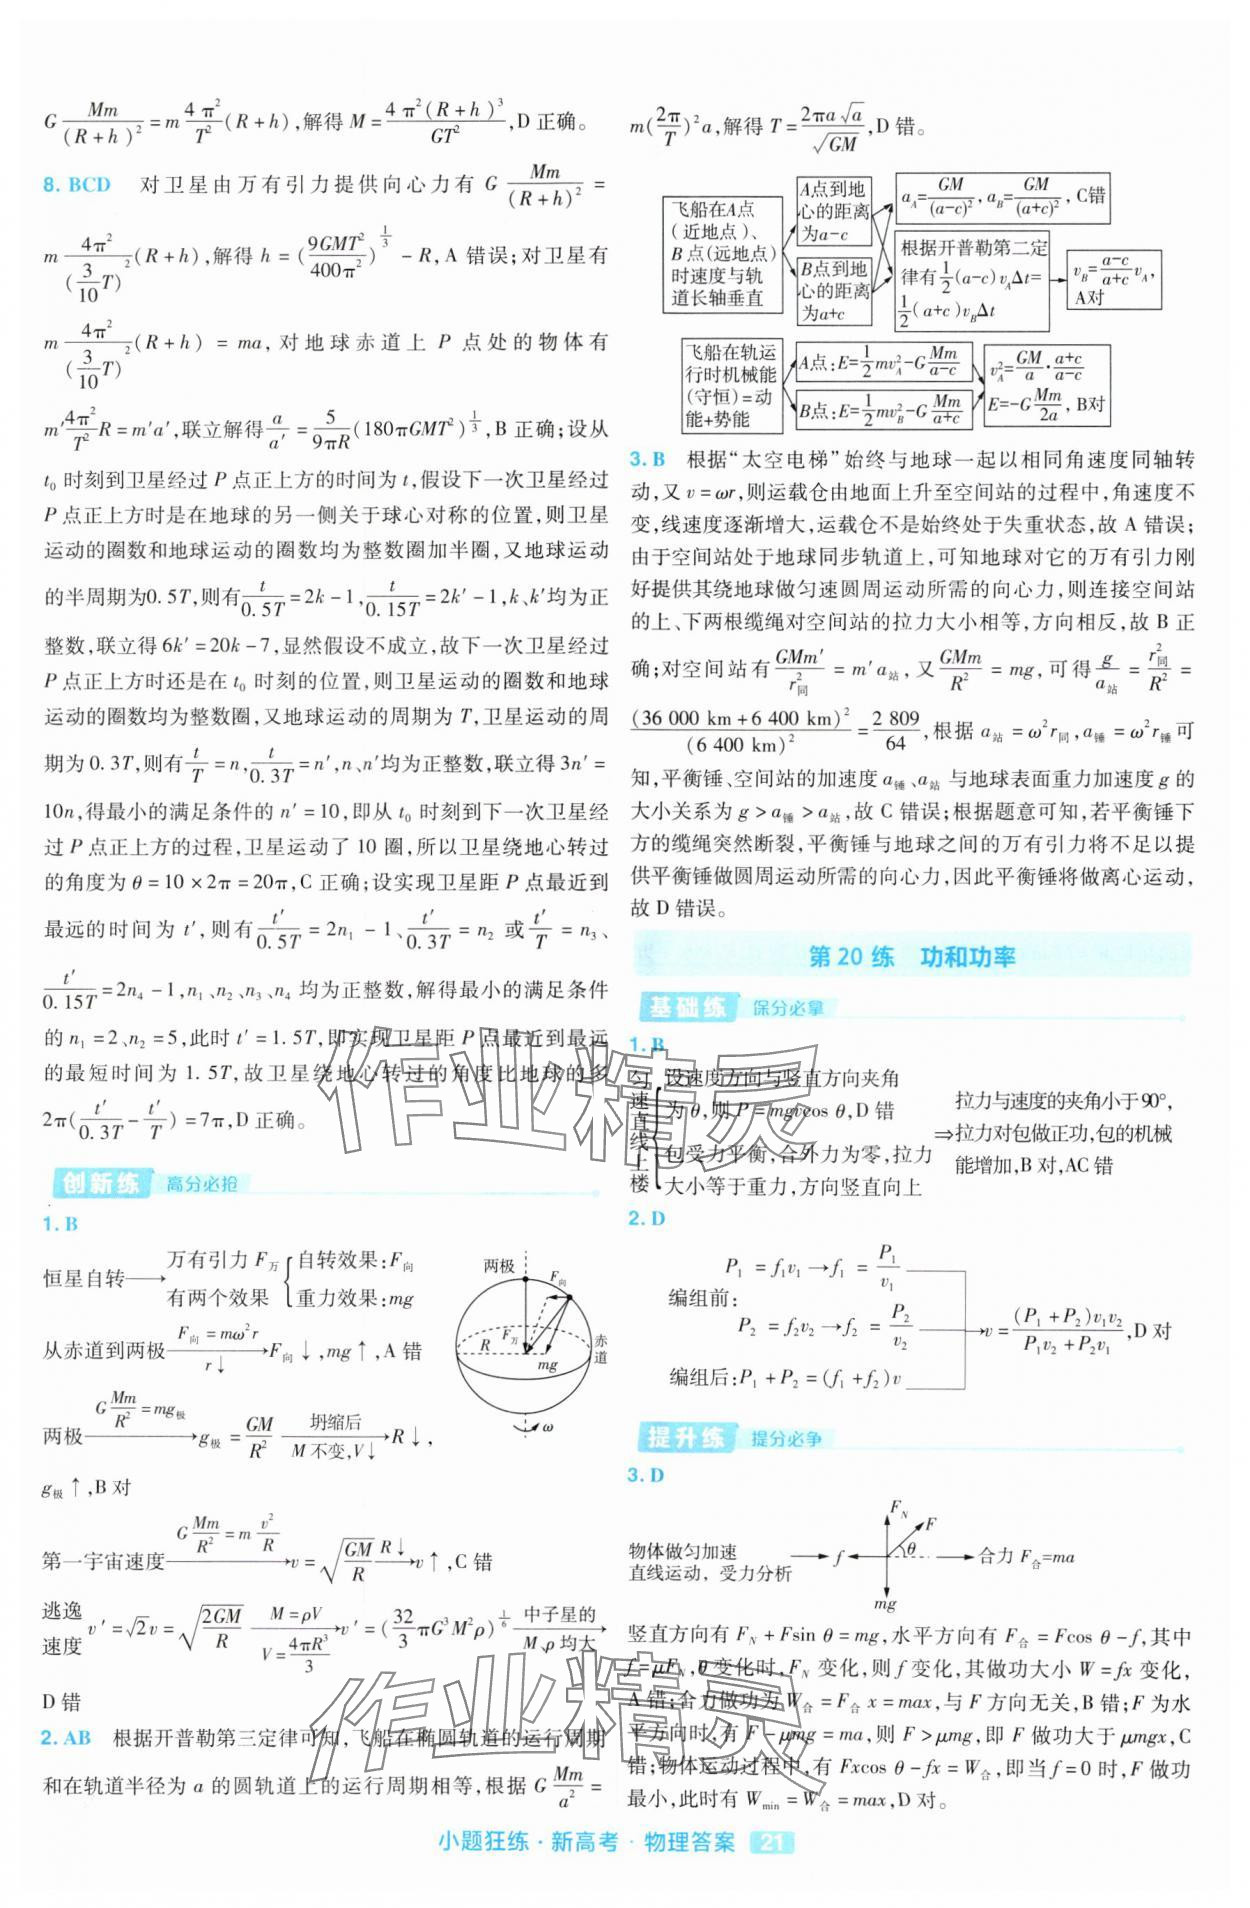 G Mm/(R+h)² = m 4π²/T² (R+h),解得 M = 4π²(R+h)³/GT²,D 正确。
8. BCD 对卫星由万有引力提供向心力有 G Mm/(R+h)² =
m 4π²/(3/10 T)² (R+h),解得 h = (9GMT²/400π²)^(1/3) - R,A 错误;对卫星有
m 4π²/(3/10 T)² (R+h) = ma,对地球赤道上 P 点处的物体有
m′ 4π²/T² R = m′a′,联立解得 a/a′ = 5/9πR (180πGMT²)^(1/3),B 正确;设从
t₀ 时刻到卫星经过 P 点正上方的时间为 t,假设下一次卫星经过
P 点正上方时是在地球的另一侧关于球心对称的位置,则卫星
运动的圈数和地球运动的圈数均为整数圈加半圈,又地球运动
的半周期为0.5T,则有 t/0.5T = 2k-1, t/0.15T = 2k′-1,k、k′均为正
整数,联立得 6k′=20k-7,显然假设不成立,故下一次卫星经过
P 点正上方时还是在 t₀ 时刻的位置,则卫星运动的圈数和地球
运动的圈数均为整数圈,又地球运动的周期为 T,卫星运动的周
期为 0.3T,则有 t/T = n, t/0.3T = n′,n、n′均为正整数,联立得 3n′=
10n,得最小的满足条件的 n′=10,即从 t₀ 时刻到下一次卫星经
过 P 点正上方的过程,卫星运动了 10 圈,所以卫星绕地心转过
的角度为 θ=10×2π=20π,C 正确;设实现卫星距 P 点最近到
最远的时间为 t′,则有 t′/0.5T = 2n₁-1、t′/0.3T = n₂ 或 t′/T = n₃、
t′/0.15T = 2n₄-1,n₁、n₂、n₃、n₄ 均为正整数,解得最小的满足条件
的 n₁=2、n₂=5,此时 t′=1.5T,即实现卫星距 P 点最近到最远
的最短时间为 1.5T,故卫星绕地心转过的角度比地球的多
2π(t′/0.3T - t′/T) = 7π,D 正确。
创新练 高分必抢
1. B
恒星自转→万有引力 F万 有两个效果{自转效果:F向
重力效果:mg
两极 F向 F万 R mg 赤道 ω
从赤道到两极 F向=mω²r r↓ →F向↓,mg↑,A 错
两极 G Mm/R² = mg极 →g极 = GM/R² 坍缩后 M 不变,V↓ →R↓,
g极↑,B 对
第一宇宙速度 G Mm/R² = m v²/R →v = √(GM/R) R↓ →v↑,C 错
逃逸速度 v′=√2v = √(2GM/R) M=ρV V=4πR³/3 →v′=(32/3 πG³M²ρ)^(1/6) 中子星的 M、ρ 均大→
D 错
2. AB 根据开普勒第三定律可知,飞船在椭圆轨道的运行周期
和在轨道半径为 a 的圆轨道上的运行周期相等,根据 G Mm/a² =
m(2π/T)²a,解得 T = 2πa√a/√GM,D 错。
飞船在A点(近地点)、B点(远地点)时速度与轨道长轴垂直
A点到地心的距离为a-c
B点到地心的距离为a+c
a_A = GM/(a-c)², a_B = GM/(a+c)²,C错
根据开普勒第二定律有 1/2(a-c)v_AΔt = 1/2(a+c)v_BΔt
v_B = (a-c)/(a+c) v_A, A对
飞船在轨运行时机械能(守恒)=动能+势能
A点:E = 1/2 mv²_A - G Mm/(a-c)
B点:E = 1/2 mv²_B - G Mm/(a+c)
v²_A = GM/a · (a+c)/(a-c)
E = -G Mm/2a, B对
3. B 根据“太空电梯”始终与地球一起以相同角速度同轴转
动,又 v=ωr,则运载仓由地面上升至空间站的过程中,角速度不
变,线速度逐渐增大,运载仓不是始终处于失重状态,故 A 错误;
由于空间站处于地球同步轨道上,可知地球对它的万有引力刚
好提供其绕地球做匀速圆周运动所需的向心力,则连接空间站
的上、下两根缆绳对空间站的拉力大小相等,方向相反,故 B 正
确;对空间站有 GMm′/r²同 = m′a站,又 GMm/R² = mg,可得 g/a站 = r²同/R² =
(36 000 km+6 400 km)²/(6 400 km)² = 2 809/64,根据 a站=ω²r同,a锤=ω²r锤可
知,平衡锤、空间站的加速度 a锤、a站 与地球表面重力加速度 g 的
大小关系为 g>a锤>a站,故 C 错误;根据题意可知,若平衡锤下
方的缆绳突然断裂,平衡锤与地球之间的万有引力将不足以提
供平衡锤做圆周运动所需的向心力,因此平衡锤将做离心运动,
故 D 错误。
第 20 练 功和功率
基础练 保分必拿
1. B
匀速直线上楼
设速度方向与竖直方向夹角
为 θ,则 P=mgvcos θ,D 错
包受力平衡,合外力为零,拉力
大小等于重力,方向竖直向上
⇒拉力与速度的夹角小于90°,
拉力对包做正功,包的机械
能增加,B 对,AC 错
2. D
编组前:
P₁=f₁v₁→f₁=P₁/v₁
P₂=f₂v₂→f₂=P₂/v₂
编组后:P₁+P₂=(f₁+f₂)v
→v=(P₁+P₂)v₁v₂/(P₁v₂+P₂v₁),D 对
提升练 提分必争
3. D
物体做匀加速
直线运动,受力分析
F_N F θ f mg
合力 F合=ma
竖直方向有 F_N+Fsin θ=mg,水平方向有 F合=Fcos θ-f,其中
f=μF_N,θ 变化时,F_N 变化,则 f 变化,其做功大小 W=fx 变化,
A 错;合力做功为 W合=F合 x=max,与 F 方向无关,B 错;F 为水
平方向时,有 F-μmg=ma,则 F>μmg,即 F 做功大于 μmgx,C
错;物体运动过程中,有 Fxcos θ-fx=W合,即当 f=0 时,F 做功
最小,此时有 W_min=W合=max,D 对。
作业精灵
作业精灵
小题狂练·新高考·物理答案 21